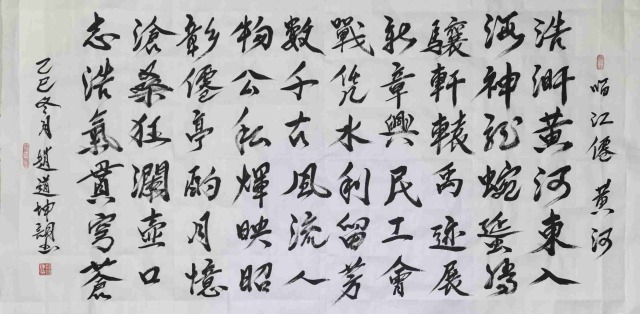 臨江僊 黃河
浩瀚黃河東入
海神龍蜿蜒騰
驤軒轅禹迹展
新章興民工會
戰凭水利留芳
數千古風流人
物公私輝映昭
彰僊亭酌月憶
滄桑狂瀾壺口
志浩氣貫穹蒼
乙巳冬月 趙道坤書